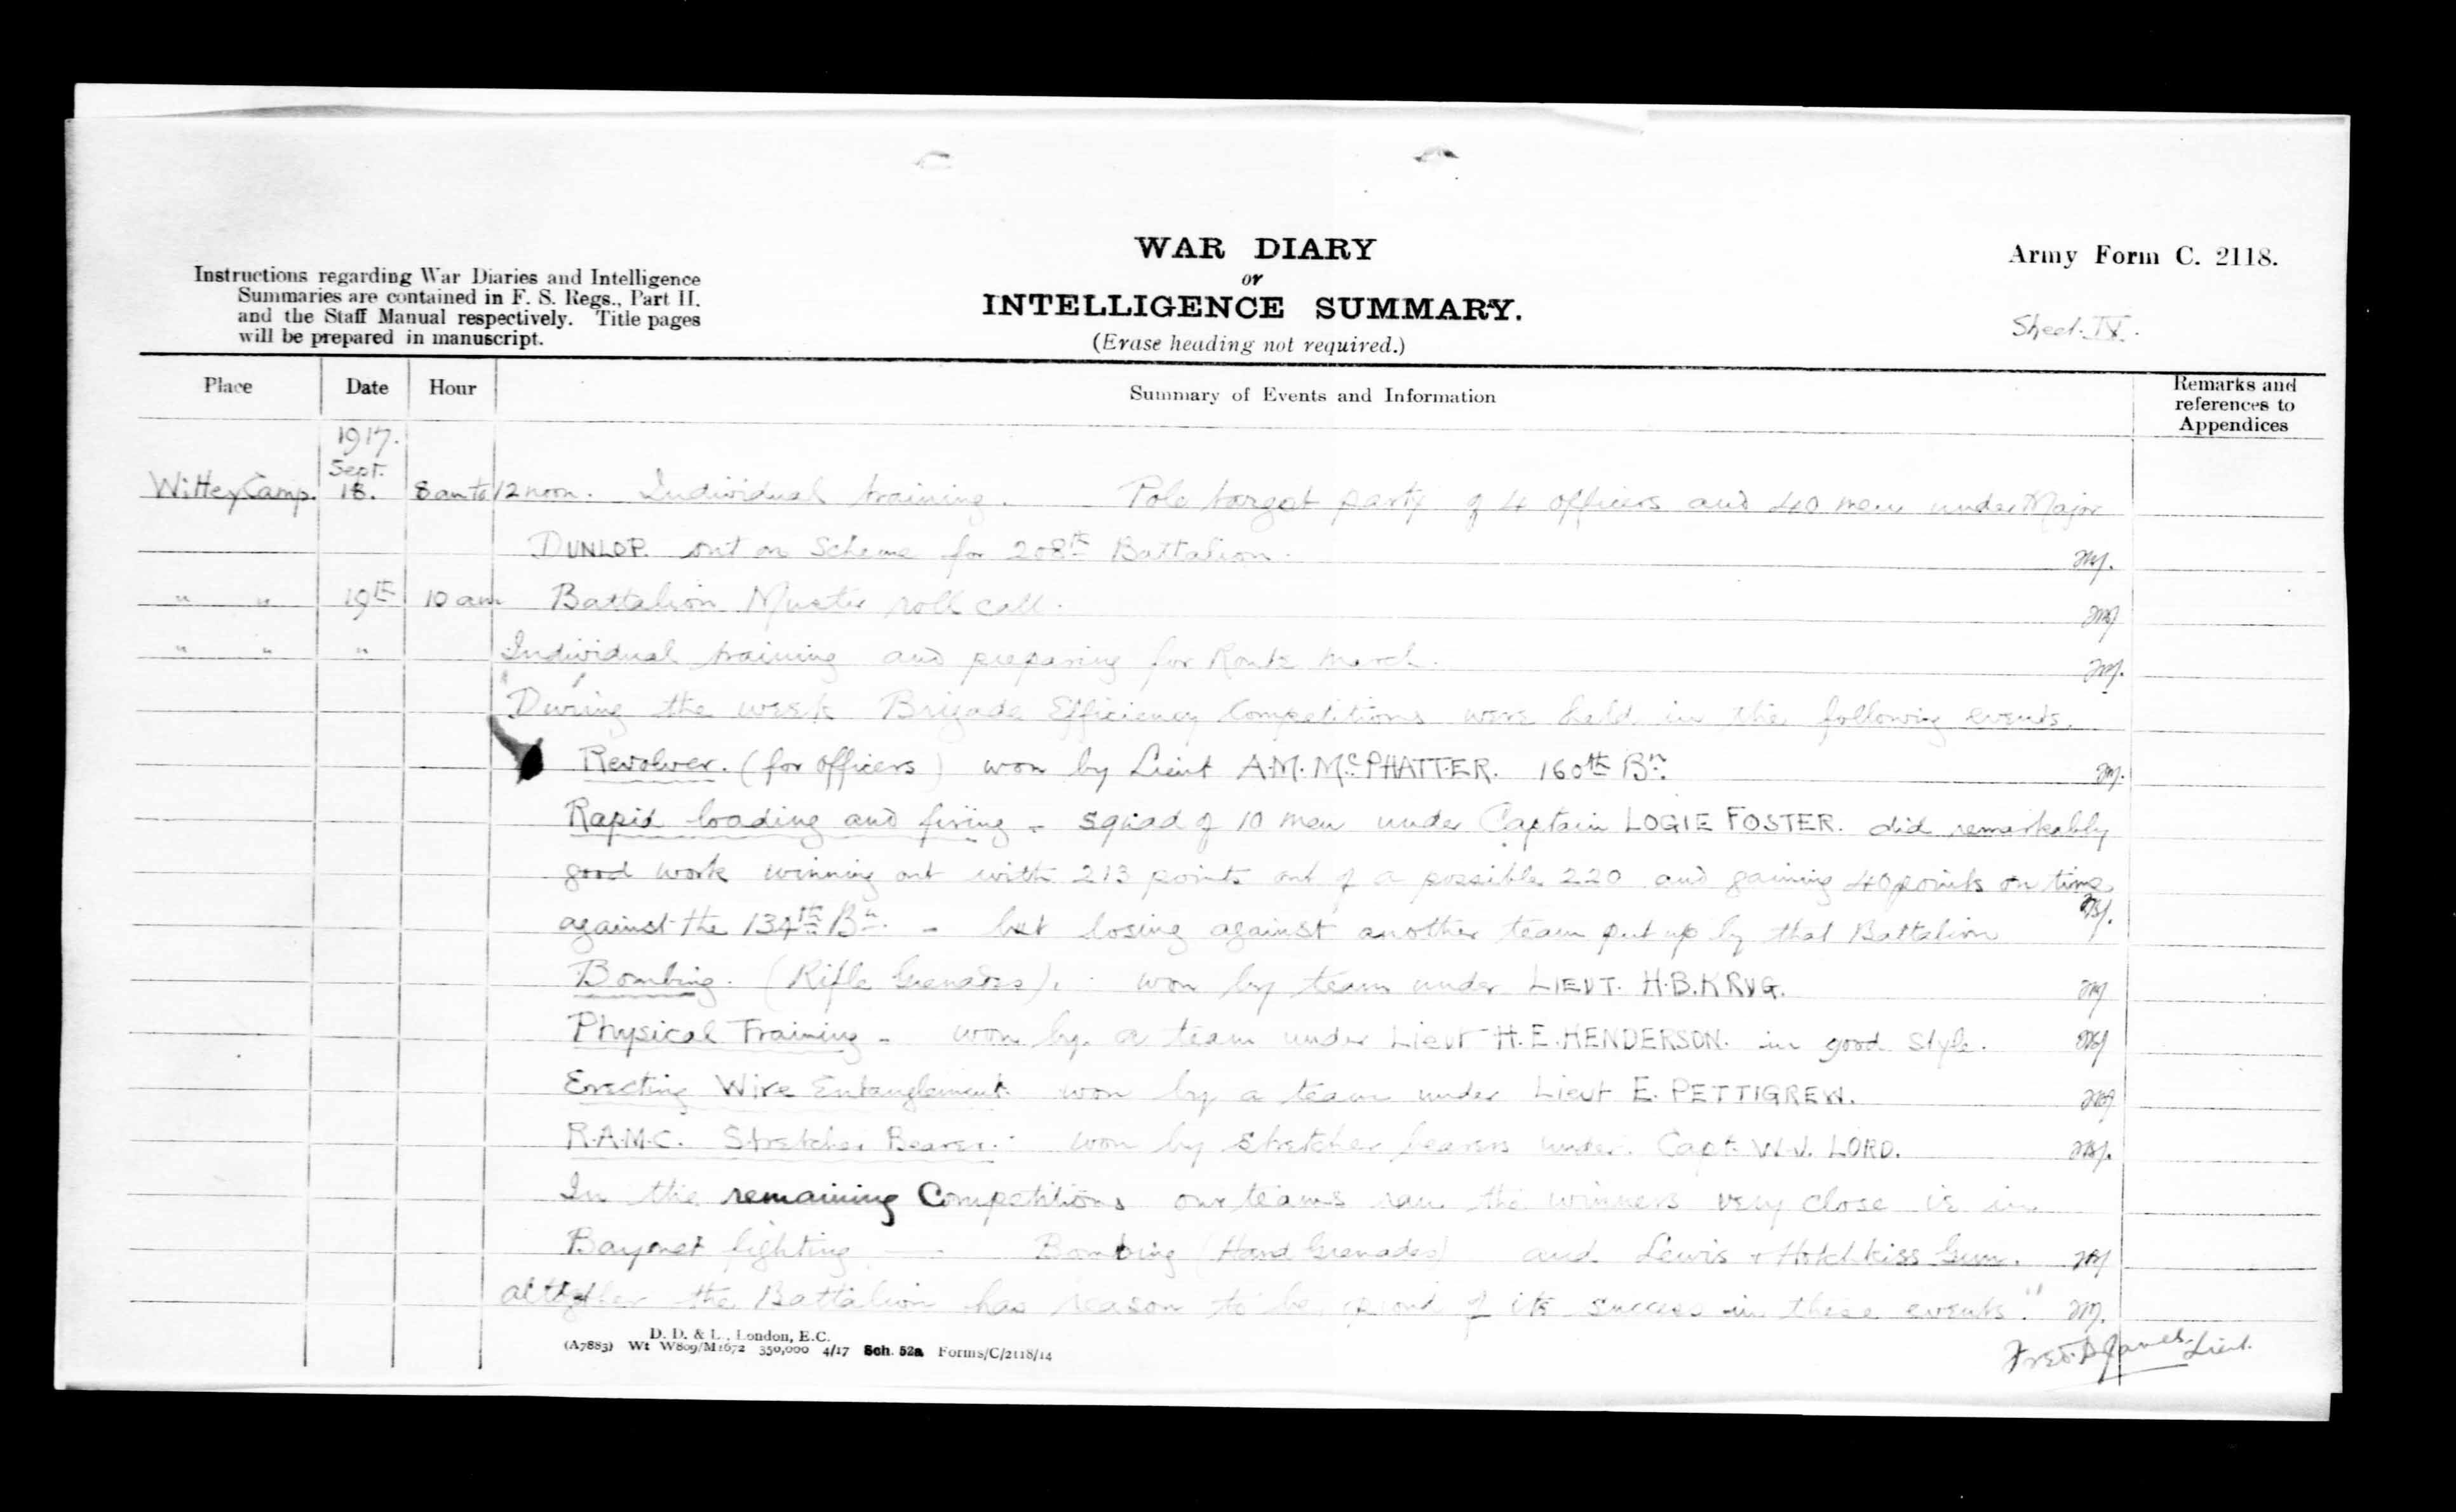 WAR DIARY
or
INTELLIGENCE SUMMARY.
(Erase heading not required.)
Army Form C. 2118.
Sheet IV.
Instructions regarding War Diaries and Intelligence
Summaries are contained in F. S. Regs., Part II.
and the Staff Manual respectively. Title pages
will be prepared in manuscript.
Place Date Hour Summary of Events and Information Remarks and
references to
Appendices
1917.
Sept.
Witley Camp. 18. 8 am to 12 noon. Individual training. Pole target party of 4 officers and 40 men under Major
DUNLOP. out on Scheme for 208th Battalion.
" " 19th 10 am Battalion Muster roll call.
" " " Individual training and preparing for Route March.
"During the week Brigade Efficiency Competitions were held in the following events.
Revolver. (for officers) won by Lieut A.M. McPHATTER. 160th Bn.
Rapid loading and firing - squad of 10 men under Captain LOGIE FOSTER. did remarkably
good work winning out with 213 points out of a possible 220 and gaining 40 points on time
against the 134th Bn. - but losing against another team put up by that Battalion
Bombing. (Rifle Grenades). - won by team under LIEUT. H.B. KRUG.
Physical Training - won by a team under Lieut H.E. HENDERSON. in good style.
Erecting Wire Entanglement. won by a team under Lieut E. PETTIGREW.
R.A.M.C. Stretcher Bearer. - won by stretcher bearers under Capt. W.J. LORD.
In the remaining Competitions our teams ran the winners very close ie in
Bayonet fighting — Bombing (Hand Grenades) and Lewis + Hotchkiss Gun.
altogether the Battalion has reason to be proud of its success in these events."
Lieut.
D. D. & L., London, E.C.
(A7883) Wt W809/M1672 350,000 4/17 Sch. 52a Forms/C/2118/14